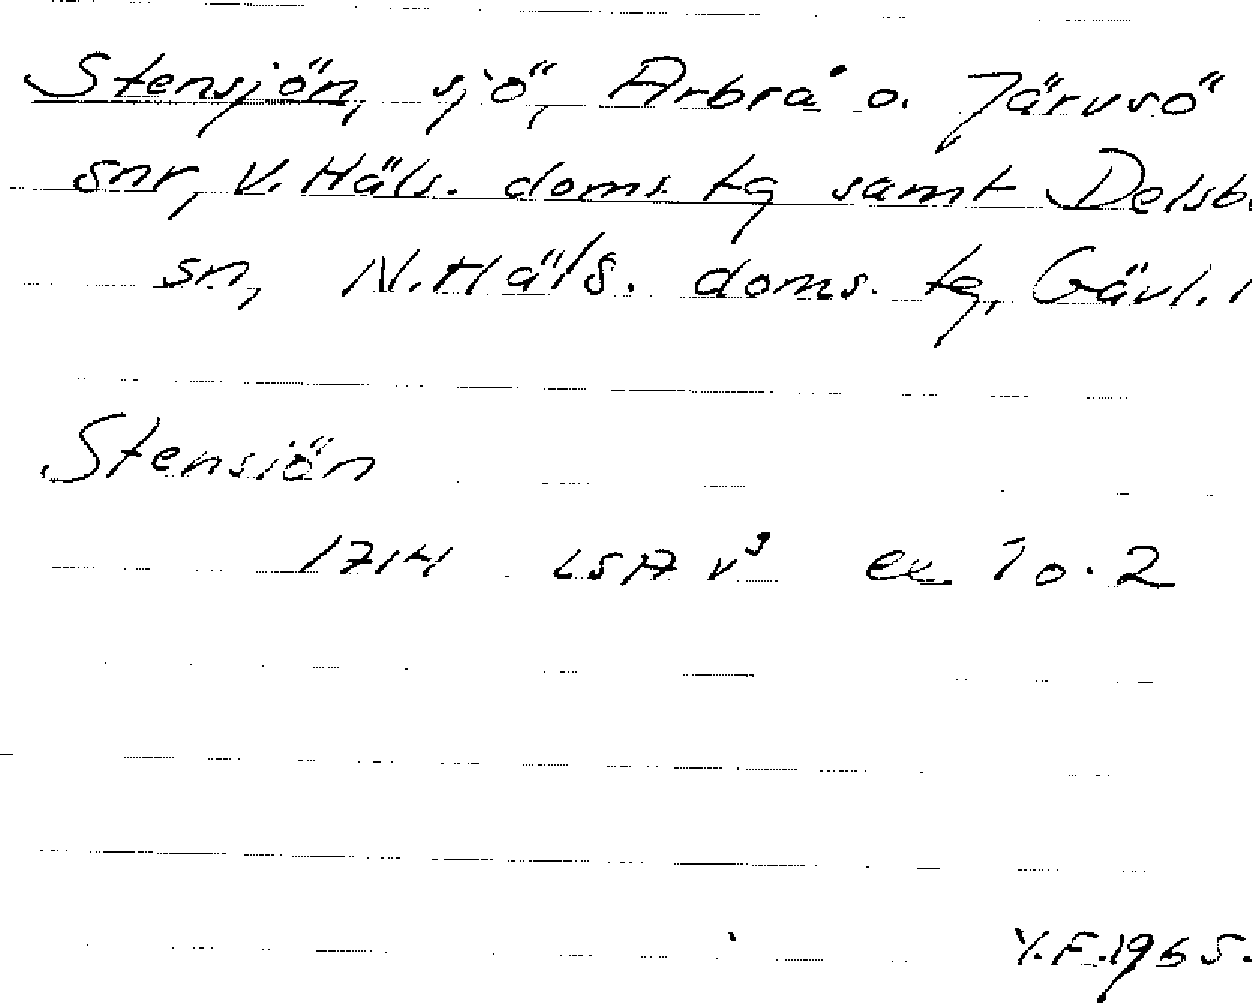 Stensjön, sjö, Arbrå o. Järvsö
snr, V. Häls. doms. tg samt Delsb.
sn, N. Häls. doms. tg, Gävl. l
Stensiön
1714 LSA v³ ex 1 o. 2
Y.F. 1965.